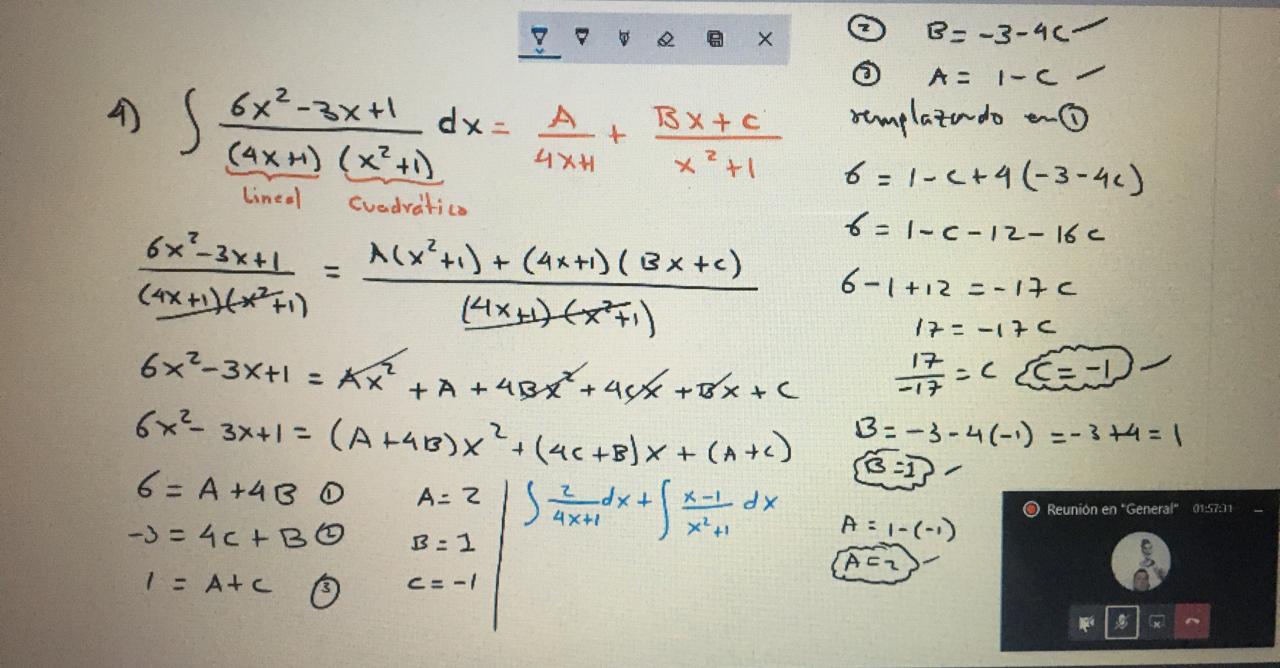 4) ∫ 6x²-3x+1 / (4x+1)(x²+1) dx = A / 4x+1 + Bx+c / x²+1
Lineal Cuadrático
6x²-3x+1 / (4x+1)(x²+1) = A(x²+1) + (4x+1)(Bx+c) / (4x+1)(x²+1)
6x²-3x+1 = Ax² + A + 4Bx² + 4cx + Bx + c
6x²-3x+1 = (A+4B)x² + (4c+B)x + (A+c)
6 = A+4B ①
-3 = 4c+B ②
1 = A+c ③
A=2
B=1
c=-1
∫ 2 / 4x+1 dx + ∫ x-1 / x²+1 dx
② B = -3-4c
③ A = 1-c
remplazando en ①
6 = 1-c+4(-3-4c)
6 = 1-c-12-16c
6-1+12 = -17c
17 = -17c
17 / -17 = c c=-1
B = -3-4(-1) = -3+4 = 1
B=1
A = 1-(-1)
A=2
Reunión en "General" 01:57:31